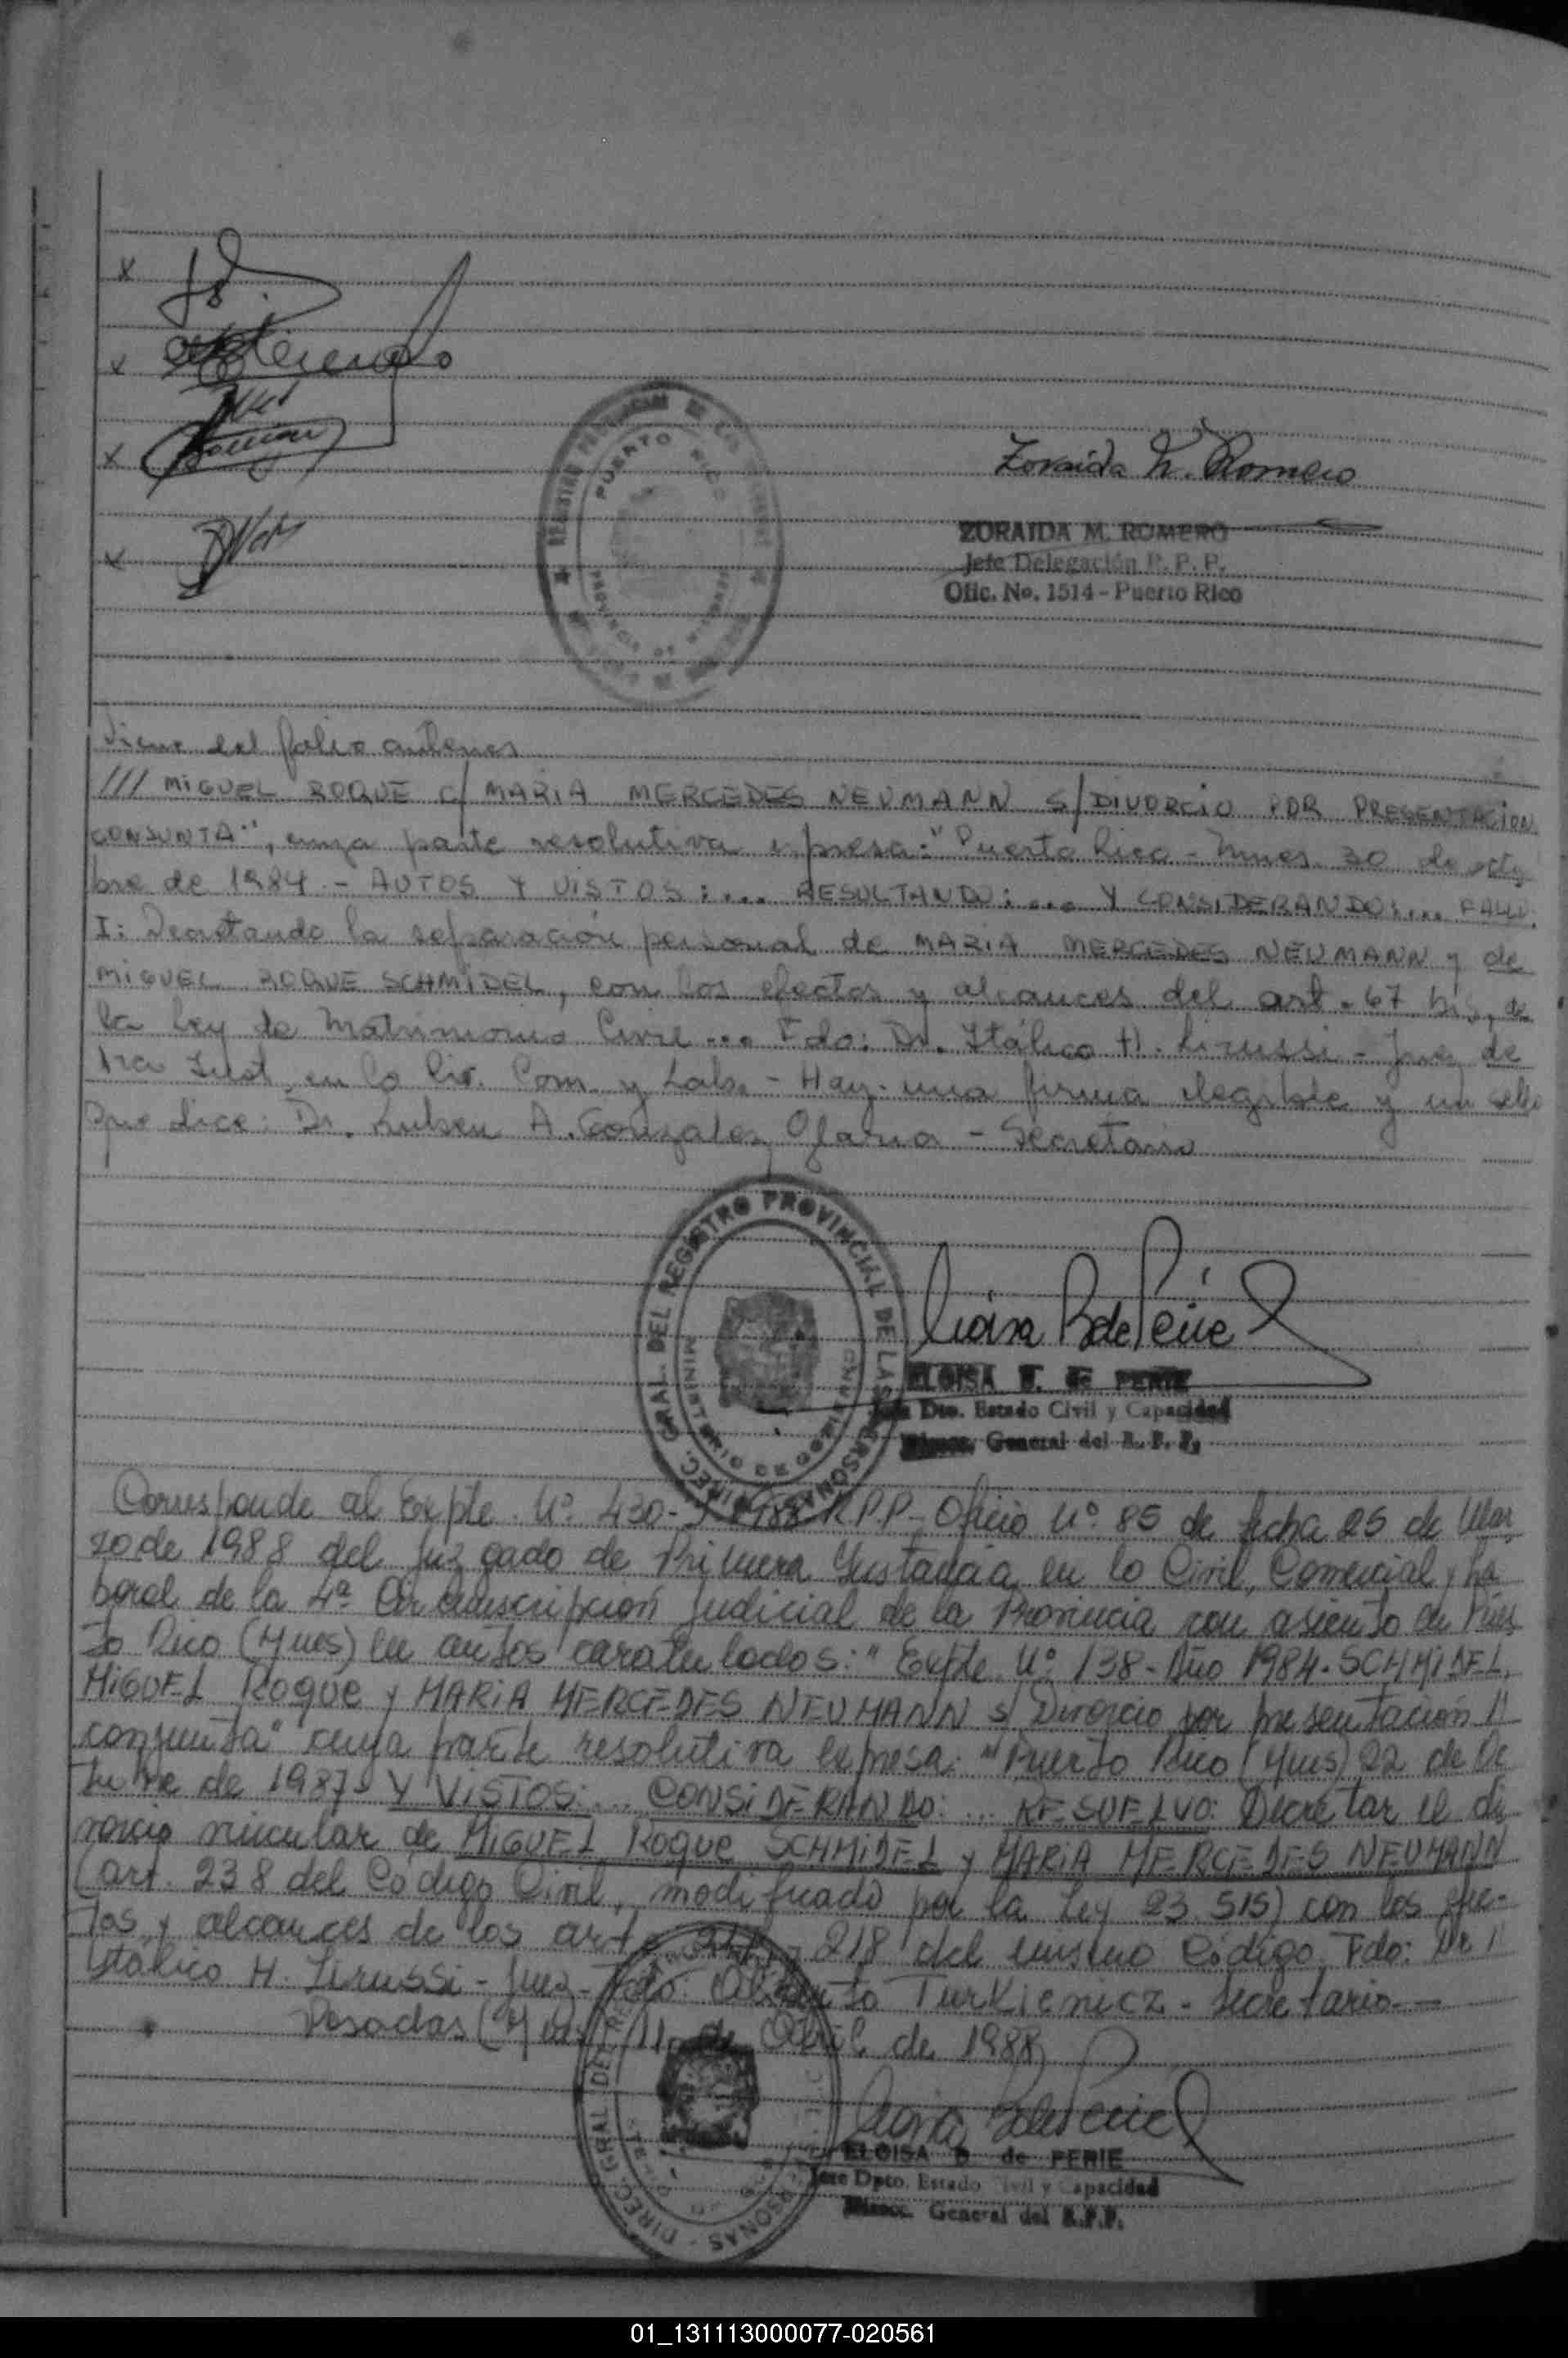 Zoraida M. Romero
ZORAIDA M. ROMERO
Jefe Delegación R. P. P.
Ofic. No. 1514 - Puerto Rico
PUERTO RICO
PROVINCIA DE MISIONES
Viene del folio anterior
/// MIGUEL ROQUE c/ MARIA MERCEDES NEUMANN S/ DIVORCIO POR PRESENTACION
CONJUNTA", cuya parte resolutiva expresa: "Puerto Rico - Mnes. 30 de octu
bre de 1984. - AUTOS Y VISTOS: ... RESULTANDO: ... Y CONSIDERANDO: ... FALLO:
I: Decretando la separación personal de MARIA MERCEDES NEUMANN y de
MIGUEL ROQUE SCHMIDEL, con los efectos y alcances del art. 67 bis, de
la Ley de Matrimonio Civil ... Fdo: Dr. Itálico H. Lirussi - Juez de
1ra Inst. en lo Civ. Com. y Lab. - Hay una firma ilegible y un sello
que dice: Dr. Ruben A. Gonzalez - Secretario
DIREC. GRAL. DEL REGISTRO PROVINCIAL DE LAS PERSONAS
MINISTERIO DE GOBIERNO
ELOISA B. de PERIE
Jefe Dto. Estado Civil y Capacidad
Direcc. General del R. P. P.
Corresponde al Expte. Nº 430- 1988 R.P.P- Oficio Nº 85 de fecha 25 de Mar
zo de 1988 del Juzgado de Primera Instancia en lo Civil, Comercial y La
boral de la 4ª Circunscripción Judicial de la Provincia con asiento en Puer
to Rico (Mnes) en autos caratulados: "Expte. Nº 138- Año 1984. SCHMIDEL,
MIGUEL Roque y MARIA MERCEDES NEUMANN s/ Divorcio por presentación //
conjunta" cuya parte resolutiva expresa: "Puerto Rico (Mnes) 22 de Oc
tubre de 1987- Y VISTOS: ... CONSIDERANDO: ... RESUELVO: Decretar el di
vorcio vincular de MIGUEL Roque SCHMIDEL y MARIA MERCEDES NEUMANN
(art. 238 del Código Civil, modificado por la Ley 23.515) con los efec-
tos y alcances de los art. 217 y 218 del mismo Código. Fdo: Dr //
Itálico H. Lirussi - Juez - Fdo: Alberto Turkienicz - Secretario. —
Posadas (Mnes) 11 de Abril de 1988
ELOISA B. de PERIE
Jefe Dpto. Estado Civil y Capacidad
Direcc. General del R.P.P.
01_131113000077-020561